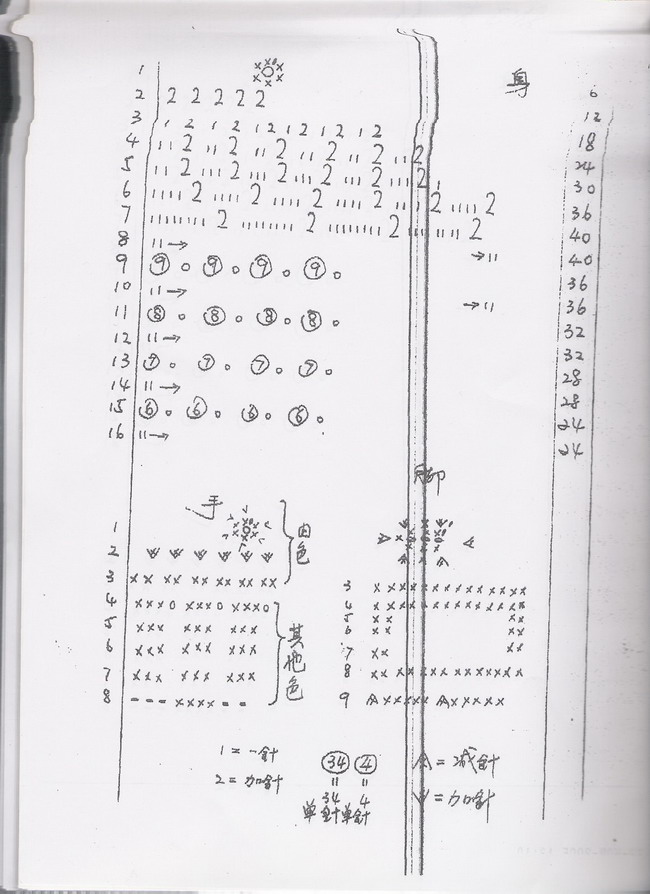 身
1 6
2 2 2 2 2 2 12
3 1 2 1 2 1 2 1 2 1 2 1 2 18
4 11 2 11 2 11 2 11 2 11 2 11 2 24
5 111 2 111 2 111 2 111 2 111 2 111 2 30
6 1111 2 1111 2 1111 2 1111 2 1111 2 1111 2 36
7 11111111 2 11111111 2 11111111 2 11111111 2 40
8 11→ →11 40
9 ⑨ o ⑨ o ⑨ o ⑨ o 36
10 11→ →11 36
11 ⑧ o ⑧ o ⑧ o ⑧ o 32
12 11→ 32
13 ⑦ o ⑦ o ⑦ o ⑦ o 28
14 11→ 28
15 ⑥ o ⑥ o ⑥ o ⑥ o 24
16 11→ 24
手 脚
1 白色
2
3 xx xx xx xx xx xx
3 xxxxxxxxxxxxxx
4 xxxo xxxo xxxo
4 xxxxxxxxxxxxxx
5 xxx xxx xxx
5 xx xx
6 xxx xxx xxx
6 xx xx
7 xxx xxx xxx
7 xx
其他色
8 --- xxxx --
8 xxxxxxxxxxxxx
9 xxxxx xxxxx
1 = 一針
2 = 加針
㉞ ④
34 4
单針单針
= 減針
= 加針